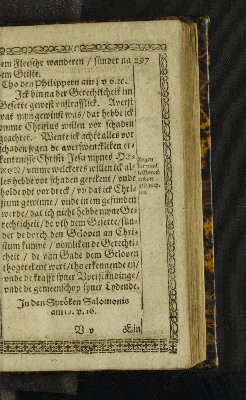 em Fleische wanderen / sünder na 297
em Geiste.
Tho den Philippern am 3 v 6. ꝛc.
Jck bin na der Gerechticheit im
Gesette gewest vnstrafflick. Auerst
wat my gewinst was / dat hebbe ick
vmme Christus willen vor schaden
geachtet. Wente ick acht alles vor
schaden jegen de auerswencklicken er-
kentenisse Christi Jesu mynes HE-
REN / vmme welckeres willen ick al-
les hebbe vor schaden gerekent / vnde
holde ydt vor dreck / vp dat ick Chri-
stum gewinne / vnde in em gefunden
werde / dat ick nicht hebbe myne Ge-
rechticheit / de vth dem Gesette / sün-
der de dorch den Gelouen an Chri-
stum kumpt / nömliken de Gerechti-
cheit / de van Gade dem Gelouen
thogerekent wert / tho erkennende en /
vnde de krafft syner Vperstandinge /
vnde de gemenschop syner Lydende.
In den Spröken Salomonis
am 12. v. 16.
V v
Ein